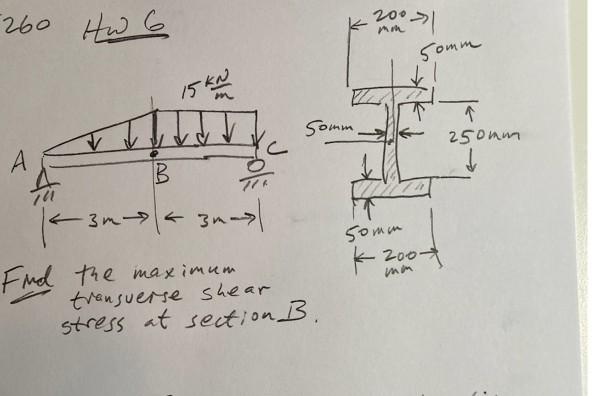 260 HW 6
200
mm
50mm
15 kN/m
50mm
250mm
A
B
C
3m
3m
50mm
200
mm
Find the maximum
transverse shear
stress at section B.